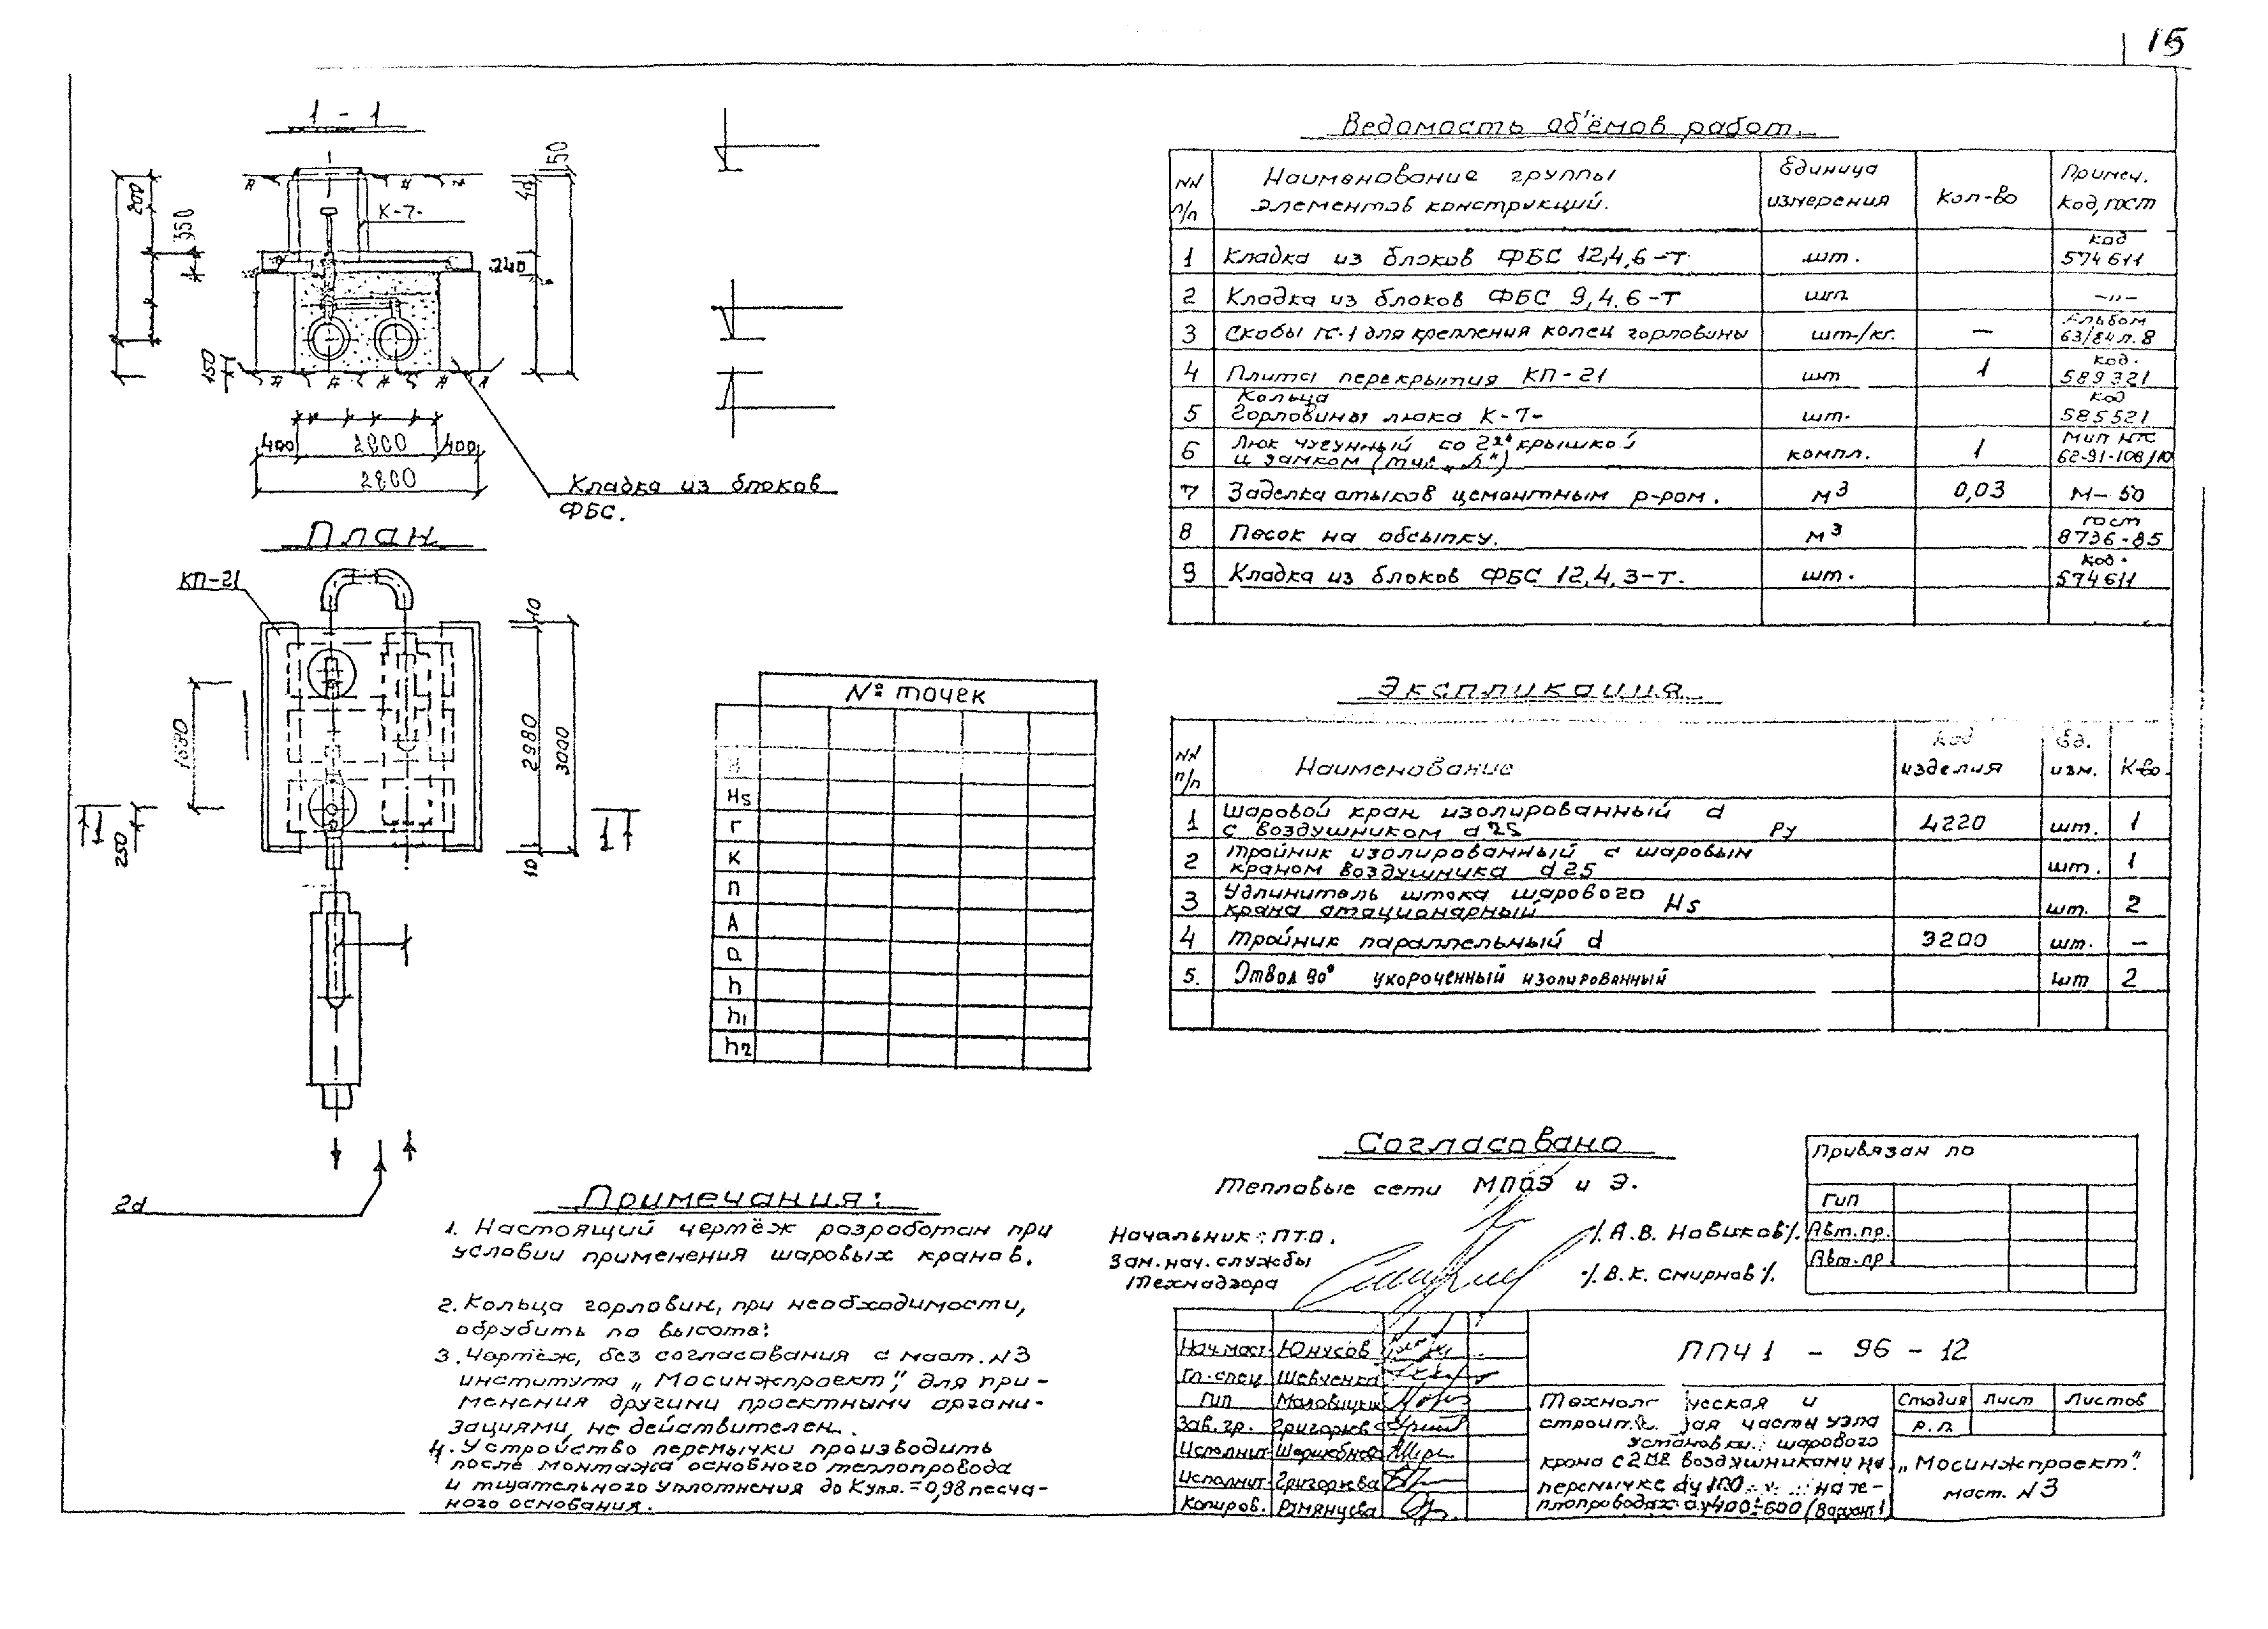 15
1 - 1
200
350
150
К-7-
240
40
150
400 2000 400
2800
Кладка из блоков
ФБС.
План
КП-21
10
2980
3000
10
1680
1
250
1
2d
№ точек
Hs
Г
К
П
А
а
h
h1
h2
Ведомость об'ёмов работ.
NN п/п
Наименование группы элементов конструкций.
Единица измерения
Кол-во
Примеч. Код, гост
1 Кладка из блоков ФБС 12,4,6-Т шт. код 574611
2 Кладка из блоков ФБС 9,4.6-Т шт -"-
3 Скобы для крепления колец горловины шт-/кг. — Альбом 63/84 л.8
4 Плита перекрытия КП-21 шт 1 код. 589321
5 Кольца горловины люка К-7- шт. код 585521
6 Люк чугунный со 2й крышкой и замком компл. 1 62-91-108/10
7 Заделка стыков цементным р-ром. м3 0,03 М-50
8 Песок на обсыпку. м3 гост 8736-85
9 Кладка из блоков ФБС 12,4,3-Т. шт. код. 574611
Экспликация
NN п/п
Наименование
Код изделия
Ед. изм.
К-во.
1 Шаровой кран изолированный d с воздушником d 25 Ру 4220 шт. 1
2 Тройник изолированный с шаровым краном воздушника d 25 шт. 1
3 Удлинитель штока шарового крана стационарный Hs шт. 2
4 Тройник параллельный d 3200 шт. —
5. Отвод 90° укороченный изолированный шт 2
Примечания:
1. Настоящий чертёж разработан при
условии применения шаровых кранов.
2. Кольца горловин, при необходимости,
обрубить по высоте.
3. Чертёж, без согласования с маст. N3
института „Мосинжпроект", для при-
менения другими проектными органи-
зациями, не действителен.
4. Устройство перемычки производить
после монтажа основного теплопровода
и тщательного уплотнения до Купл.=0,98 песча-
ного основания.
Согласовано
Тепловые сети и Э.
Начальник: ПТО.
/. А.В. Новиков/.
Зам. нач. службы
Технадзора
/. В.К. Смирнов/.
Привязан по
Гип
Авт.пр.
Авт.пр.
Нач маст. Юнусов
Гл. спец Шевченко
Гип
Зав. гр. Григорьева
Исполнит.
Исполнит. Григорьева
Копиров. Румянцева
ППЧ 1 - 96 - 12
строит. ая часть узла
установки шарового
крана с 2мя воздушниками на
перемычке dу 100 на те-
плопроводах dу400÷600 (Вариант 1)
Стадия Лист Листов
Р.П.
„Мосинжпроект".
маст. N3